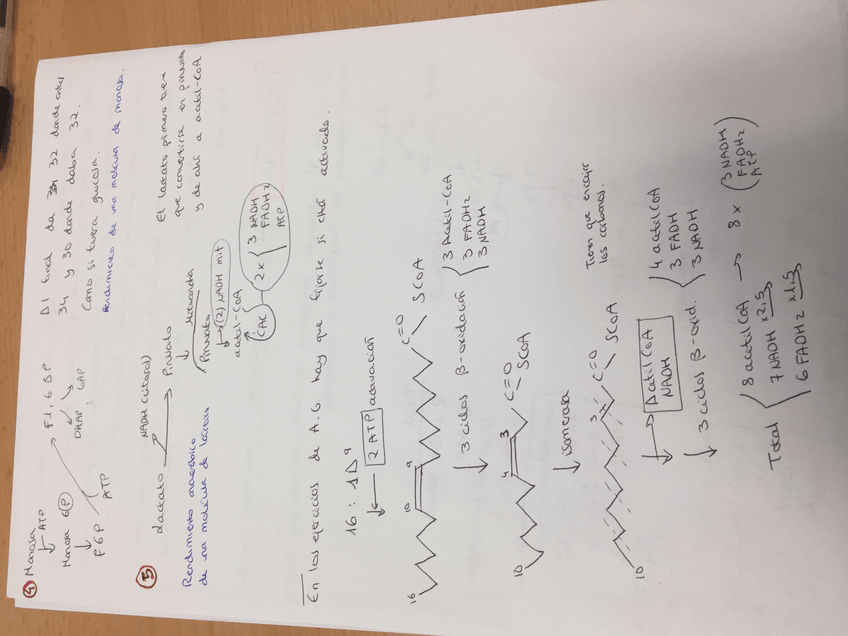 ④ Manosa
↓ ATP
Manosa 6 P
↓
F6P
ATP
F1,6 BP
DHAP GAP
Al final da 32 donde antes
34 y 30 donde daba 32.
Como si fuera glucosa.
Rendimiento de una molécula de manosa.
⑤
Lactato → Piruvato
NADH (citosol)
↓ Mitocondria
Piruvato
↓ (2) NADH mit
acetil-CoA
CAC
2 x { 3 NADH
FADH2
ATP
El lactato primero tiene
que convertirse en piruvato
y de ahí a acetil-CoA
Rendimiento anaeróbico
de una molécula de lactato
En los ejercicios de A.G. hay que fijarse si está activado.
16 : 1Δ9
↓ 2 ATP activación
16 10 9 C=O
SCoA
↓ 3 ciclos β-oxidación { 3 Acetil-CoA
3 FADH2
3 NADH
10 4 3 C=O
SCoA
↓ isomerasa
Tienen que encajar
los carbonos.
10 3 C=O
SCoA
↓ Acetil CoA
NADH
↓ 3 ciclos β-oxid. { 4 acetil CoA
3 FADH
3 NADH
Total { 8 acetil CoA → 8 x (3 NADH
FADH2
ATP)
7 NADH x2,5
6 FADH2 x1,5